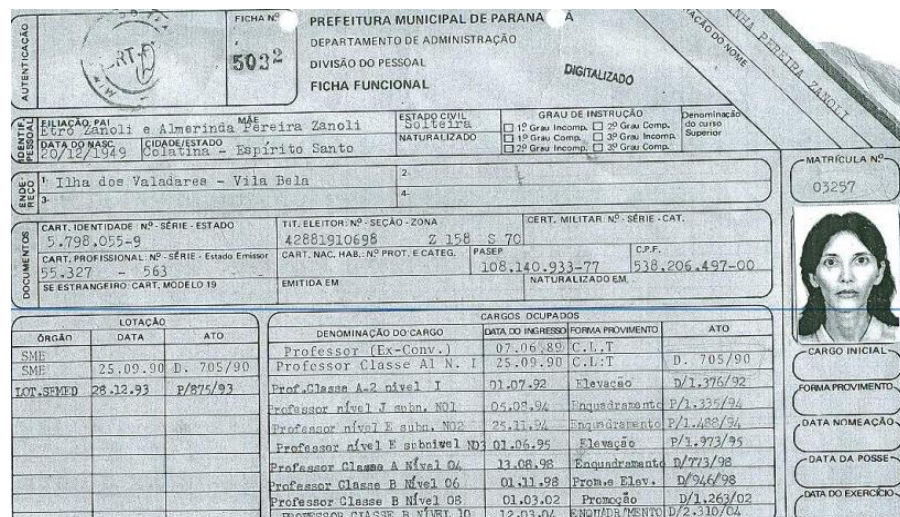 AUTENTICAÇÃO
FICHA Nº
5032
PREFEITURA MUNICIPAL DE PARANA A
DEPARTAMENTO DE ADMINISTRAÇÃO
DIVISÃO DO PESSOAL
FICHA FUNCIONAL
DIGITALIZADO
AÇÃO DO NOME
NHA PEREIRA ZANOLI
IDENTIF. PESSOAL
FILIAÇÃO: PAI MÃE
Etro Zanoli e Almerinda Pereira Zanoli
ESTADO CIVIL
Solteira
NATURALIZADO
GRAU DE INSTRUÇÃO
1º Grau Incomp. 2º Grau Comp.
1º Grau Comp. 3º Grau Incomp.
2º Grau Incomp. 3º Grau Comp.
Denominação do curso Superior
DATA DO NASC. CIDADE/ESTADO
20/12/1949 Colatina - Espírito Santo
MATRÍCULA Nº
03257
ENDEREÇO
1- Ilha dos Valadares - Vila Bela
2-
3-
4-
DOCUMENTOS
CART. IDENTIDADE: Nº - SÉRIE - ESTADO
5.798.055-9
TIT. ELEITOR: Nº - SEÇÃO - ZONA
42881910698 Z 158 S 70
CERT. MILITAR: Nº - SÉRIE - CAT.
CART. PROFISSIONAL: Nº - SÉRIE - Estado Emissor
55.327 - 563
CART. NAC. HAB.: Nº PROT. E CATEG.
PASEP
108.140.933-77
C.P.F.
538.206.497-00
SE ESTRANGEIRO: CART. MODELO 19
EMITIDA EM
NATURALIZADO EM
LOTAÇÃO
ÓRGÃO DATA ATO
SME
SME 25.09.90 D. 705/90
LOT.SEMED 28.12.93 P/875/93
CARGOS OCUPADOS
DENOMINAÇÃO DO CARGO DATA DO INGRESSO FORMA PROVIMENTO ATO
Professor (Ex-Conv.) 07.06.89 C.L.T
Professor Classe A1 N. I 25.09.90 C.L.T D. 705/90
Prof.Classe A-2 nivel I 01.07.92 Elevação D/1.376/92
Professor nível J subn. N01 05.08.94 Enquadramento P/1.335/94
Professor nível E subn. N02 25.11.94 Enquadramento P/1.488/94
Professor nível E subnivel N03 01.06.95 Elevação P/1.973/95
Professor Classe A Nível 04 13.08.98 Enquadramento D/773/98
Professor Classe B Nível 06 01.11.98 Prom.e Elev. D/946/98
Professor Classe B Nível 08 01.03.02 Promoção D/1.263/02
PROFESSOR CLASSE B NÍVEL 10 12.03.04 ENQUADR/MENTO D/2.310/04
CARGO INICIAL
FORMA PROVIMENTO
DATA NOMEAÇÃO
DATA DA POSSE
DATA DO EXERCÍCIO